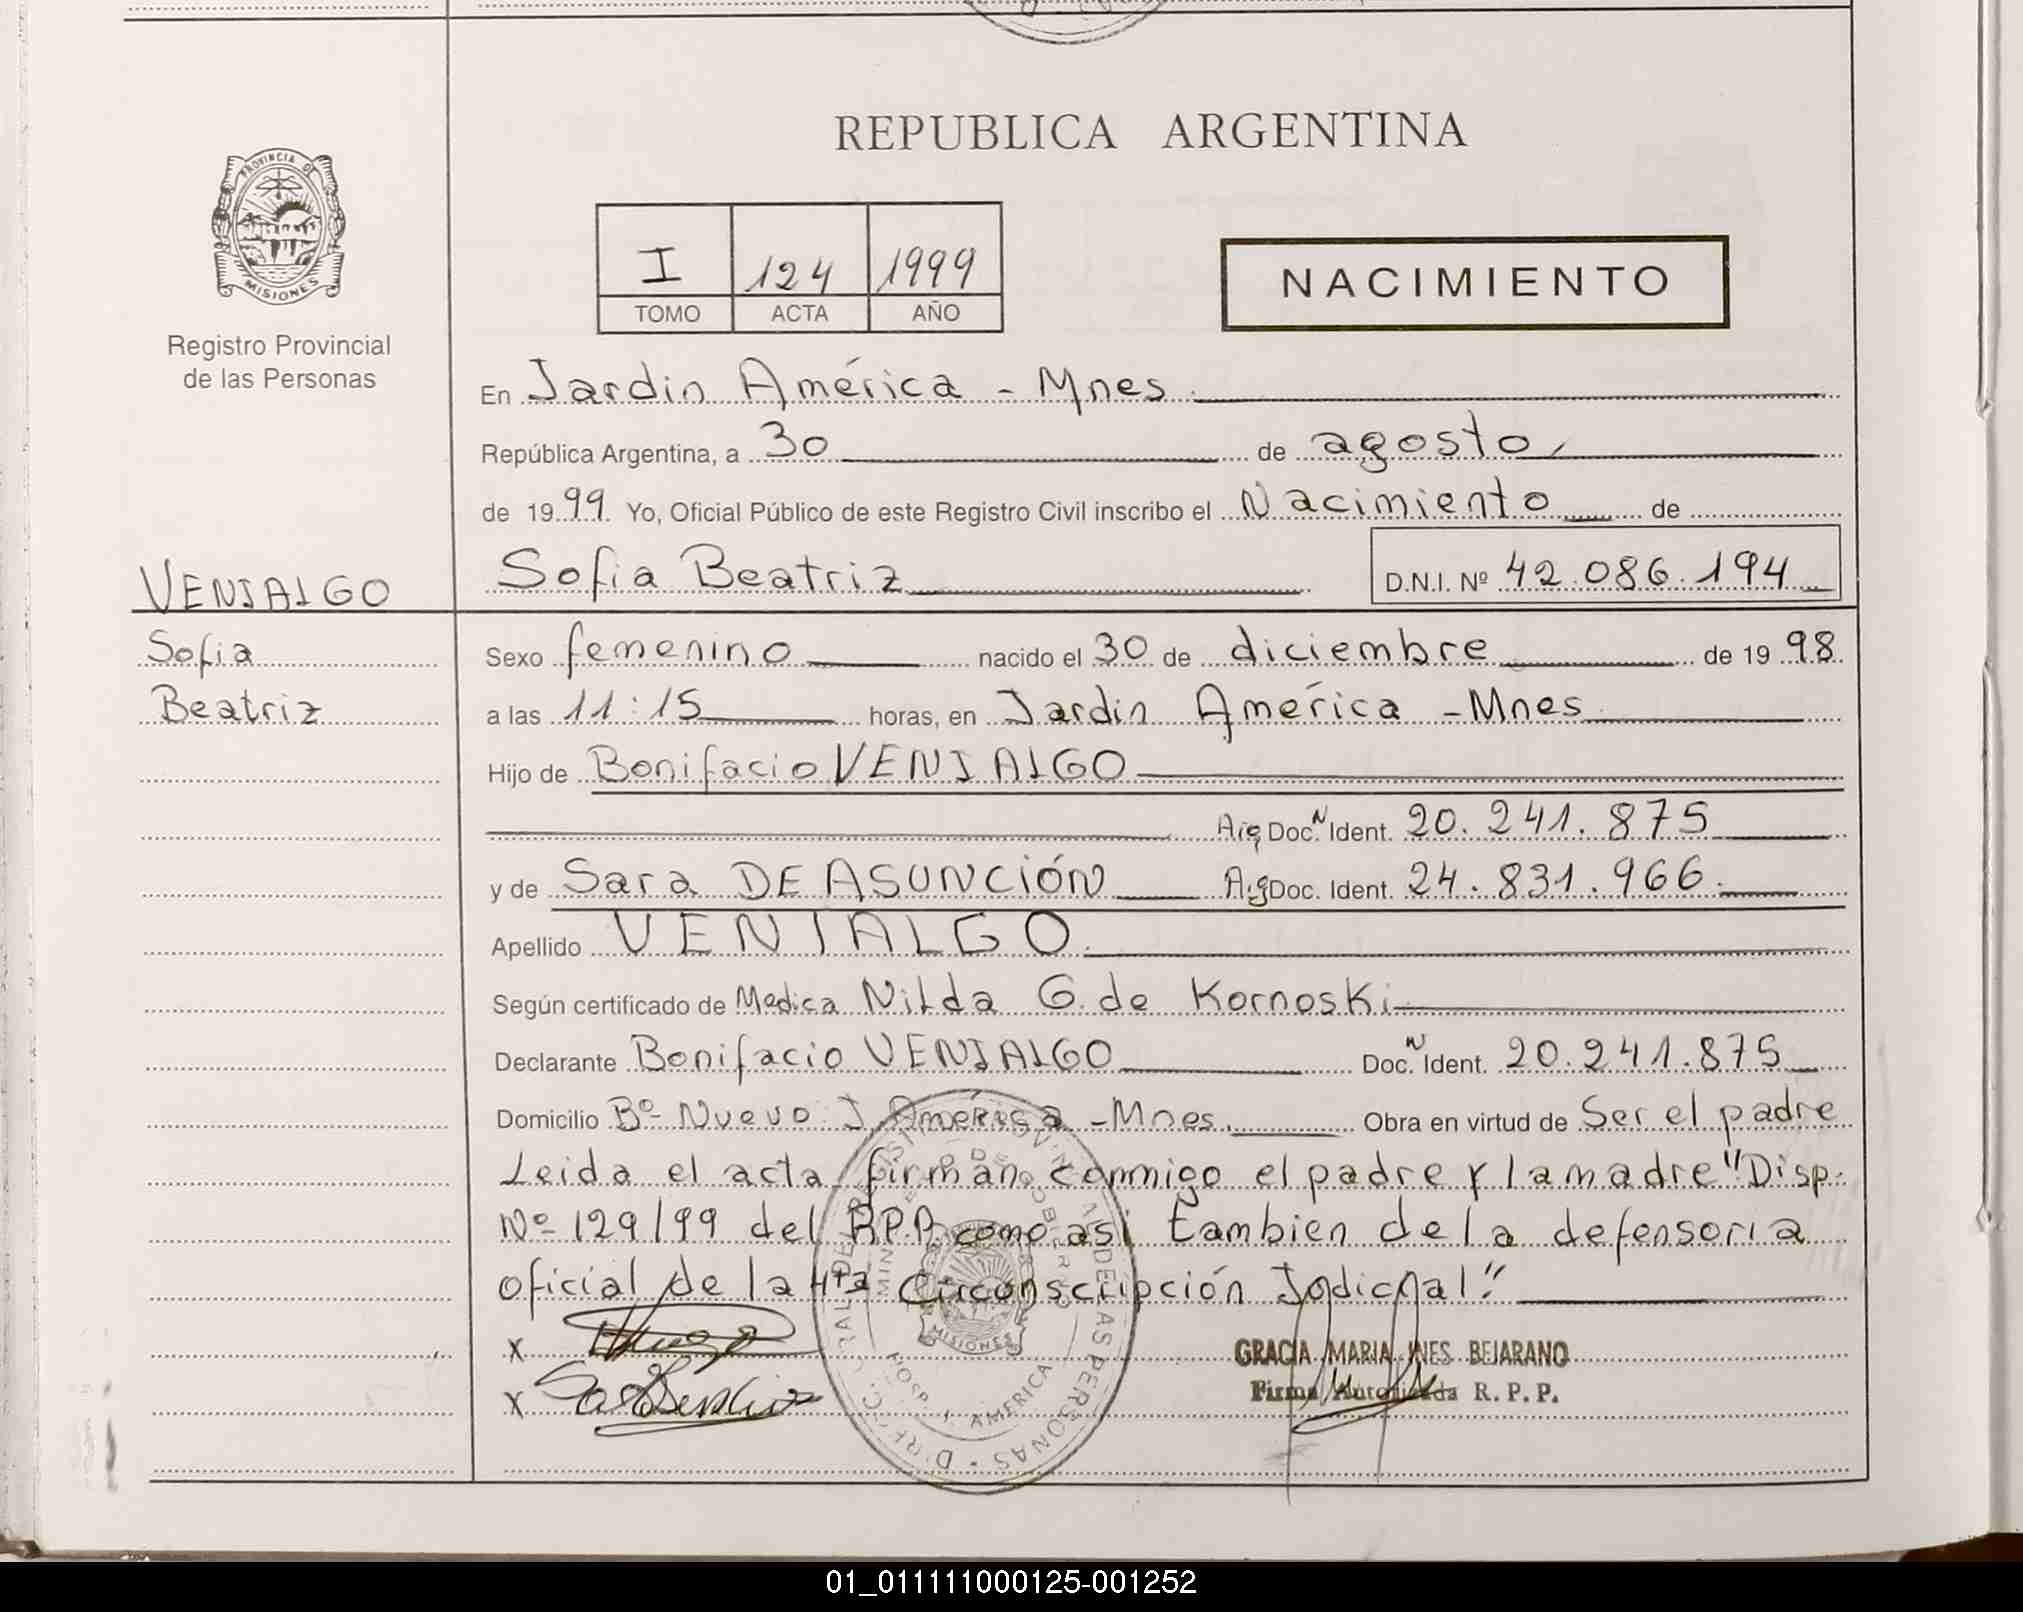 REPUBLICA ARGENTINA
PROVINCIA DE
MISIONES
Registro Provincial
de las Personas
I 124 1999
TOMO ACTA AÑO
NACIMIENTO
En Jardin América - Mnes
República Argentina, a 30 de agosto
de 1999 Yo, Oficial Público de este Registro Civil inscribo el Nacimiento de
VENIALGO
Sofia Beatriz D.N.I. Nº 42.086.194
Sofia
Beatriz
Sexo femenino nacido el 30 de diciembre de 1998
a las 11:15 horas, en Jardin América - Mnes
Hijo de Bonifacio VENIALGO
Arg Doc. N Ident. 20.241.875
y de Sara DE ASUNCIÓN Arg Doc. Ident. 24.831.966
Apellido VENIALGO
Según certificado de Medica Nilda G. de Kornoski
Declarante Bonifacio VENIALGO Doc. N Ident. 20.241.875
Domicilio Bº Nuevo J. América - Mnes. Obra en virtud de Ser el padre
Leida el acta firman conmigo el padre y la madre "Disp.
Nº 129/99 del R.P.P. como asi tambien de la defensoria
oficial de la 4ta Circonscripción Jodicial"
X
X
GRACIA MARIA INES BEJARANO
Firma Autorizada R. P. P.
MISIONES
HOSP. J. AMERICA
01_011111000125-001252